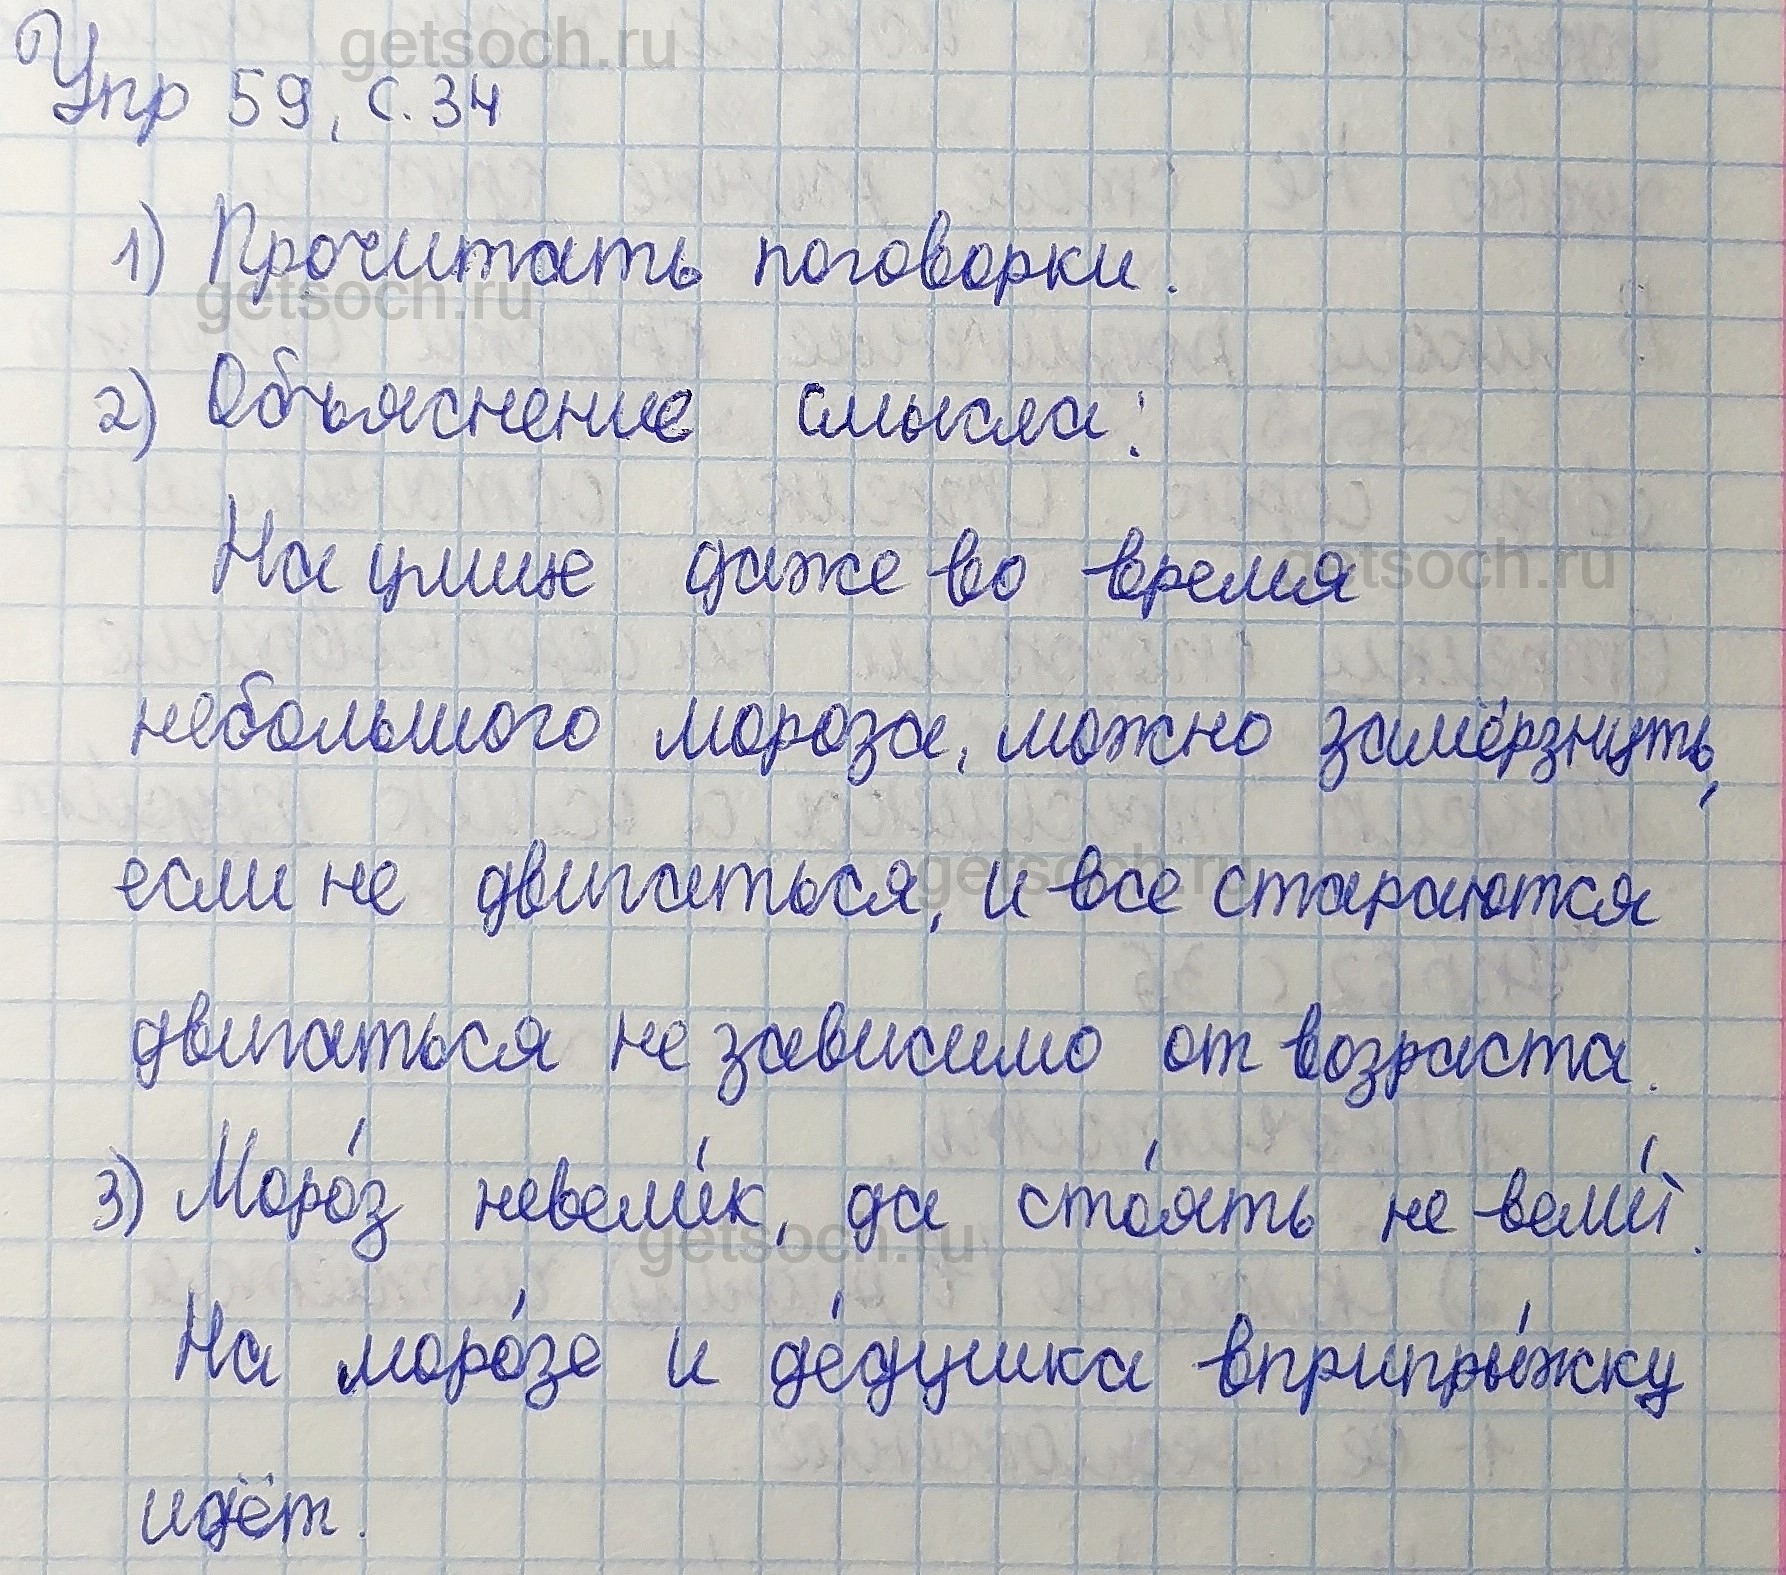 getsoch.ru
Упр 59, с. 34
1) Прочитать поговорки.
getsoch.ru
2) Объяснение смысла:
На улице даже во время
getsoch.ru
небольшого мороза, можно замёрзнуть,
если не двигаться, и все стараются
getsoch.ru
двигаться не зависимо от возраста.
3) Моро́з невели́к, да сто́ять не вели́т.
getsoch.ru
На моро́зе и де́душка вприпры́жку
идёт.